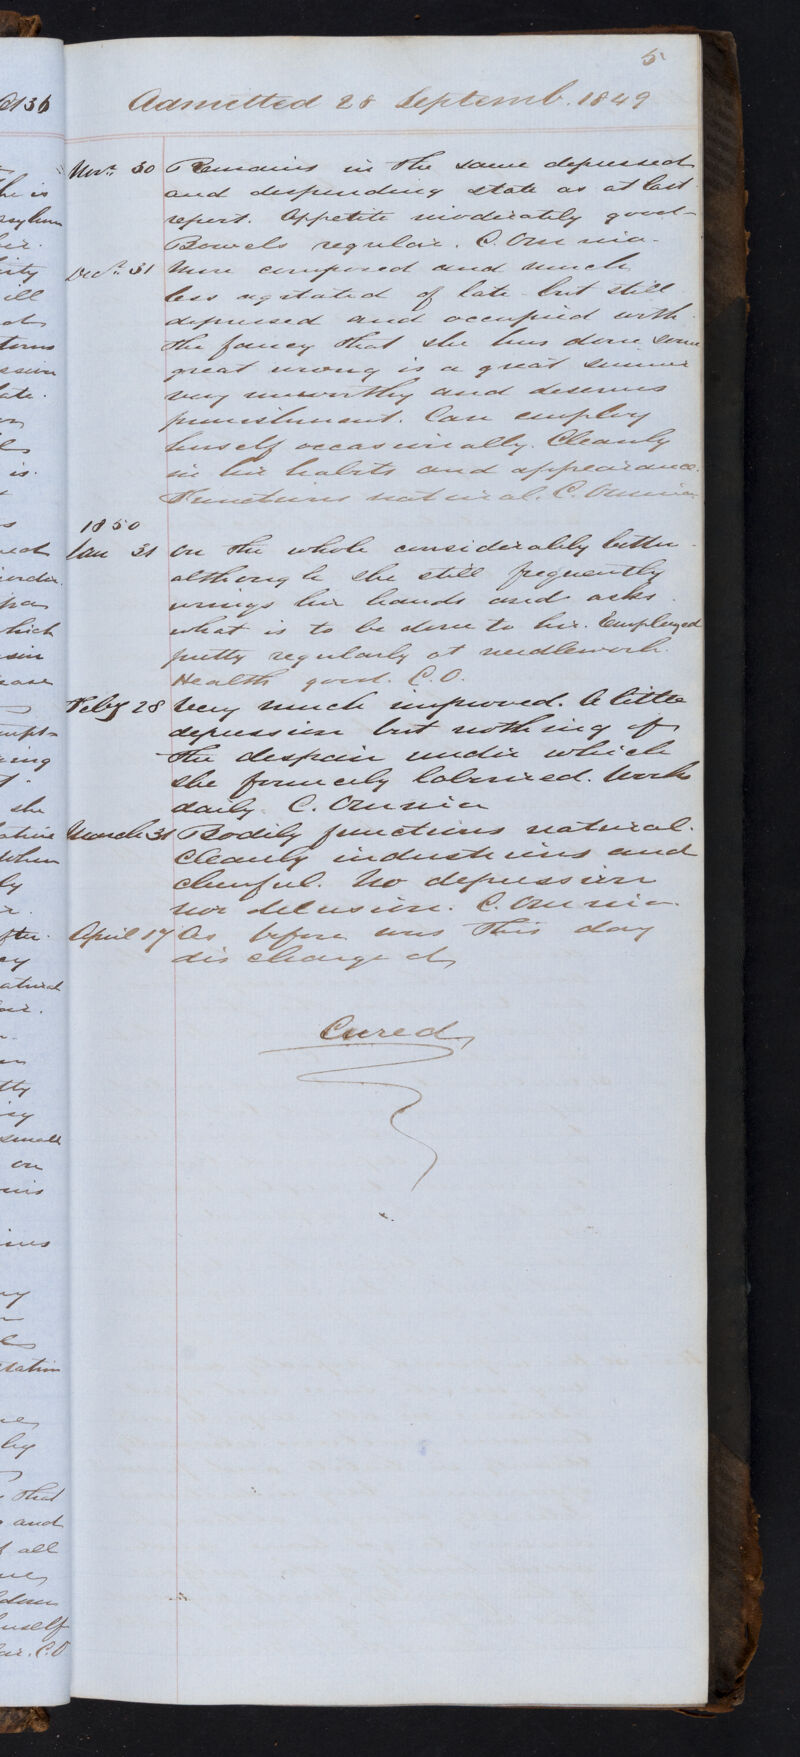 5
Admitted 28 Septemb. 1849
Novr. 30 Remains in the same depressed
and desponding state as at last
report. Appetite moderately good
Bowels regular. C. Omnia.
Decr. 31 More composed and much
less agitated of late but still
depressed and occupied with
the fancy that she has done some
great wrong is a great sinner
very unworthy and deserves
punishment. Can employ
herself occasionally. Cleanly
in her habits and appearance.
Functions natural. C. Omnia
1850
Jan 31 On the whole considerably better
although she still frequently
wrings her hands and asks
what is to be done to her. Employed
pretty regularly at needlework.
Health good. C. O.
Feby 28 Very much improved. A little
depression but nothing of
the despair under which
she formerly laboured. Works
daily. C. Omnia
March 31 Bodily functions natural.
Cleanly industrious and
cheerful. No depression
nor delusion. C. Omnia.
April 17 As before was this day
discharged
Cured